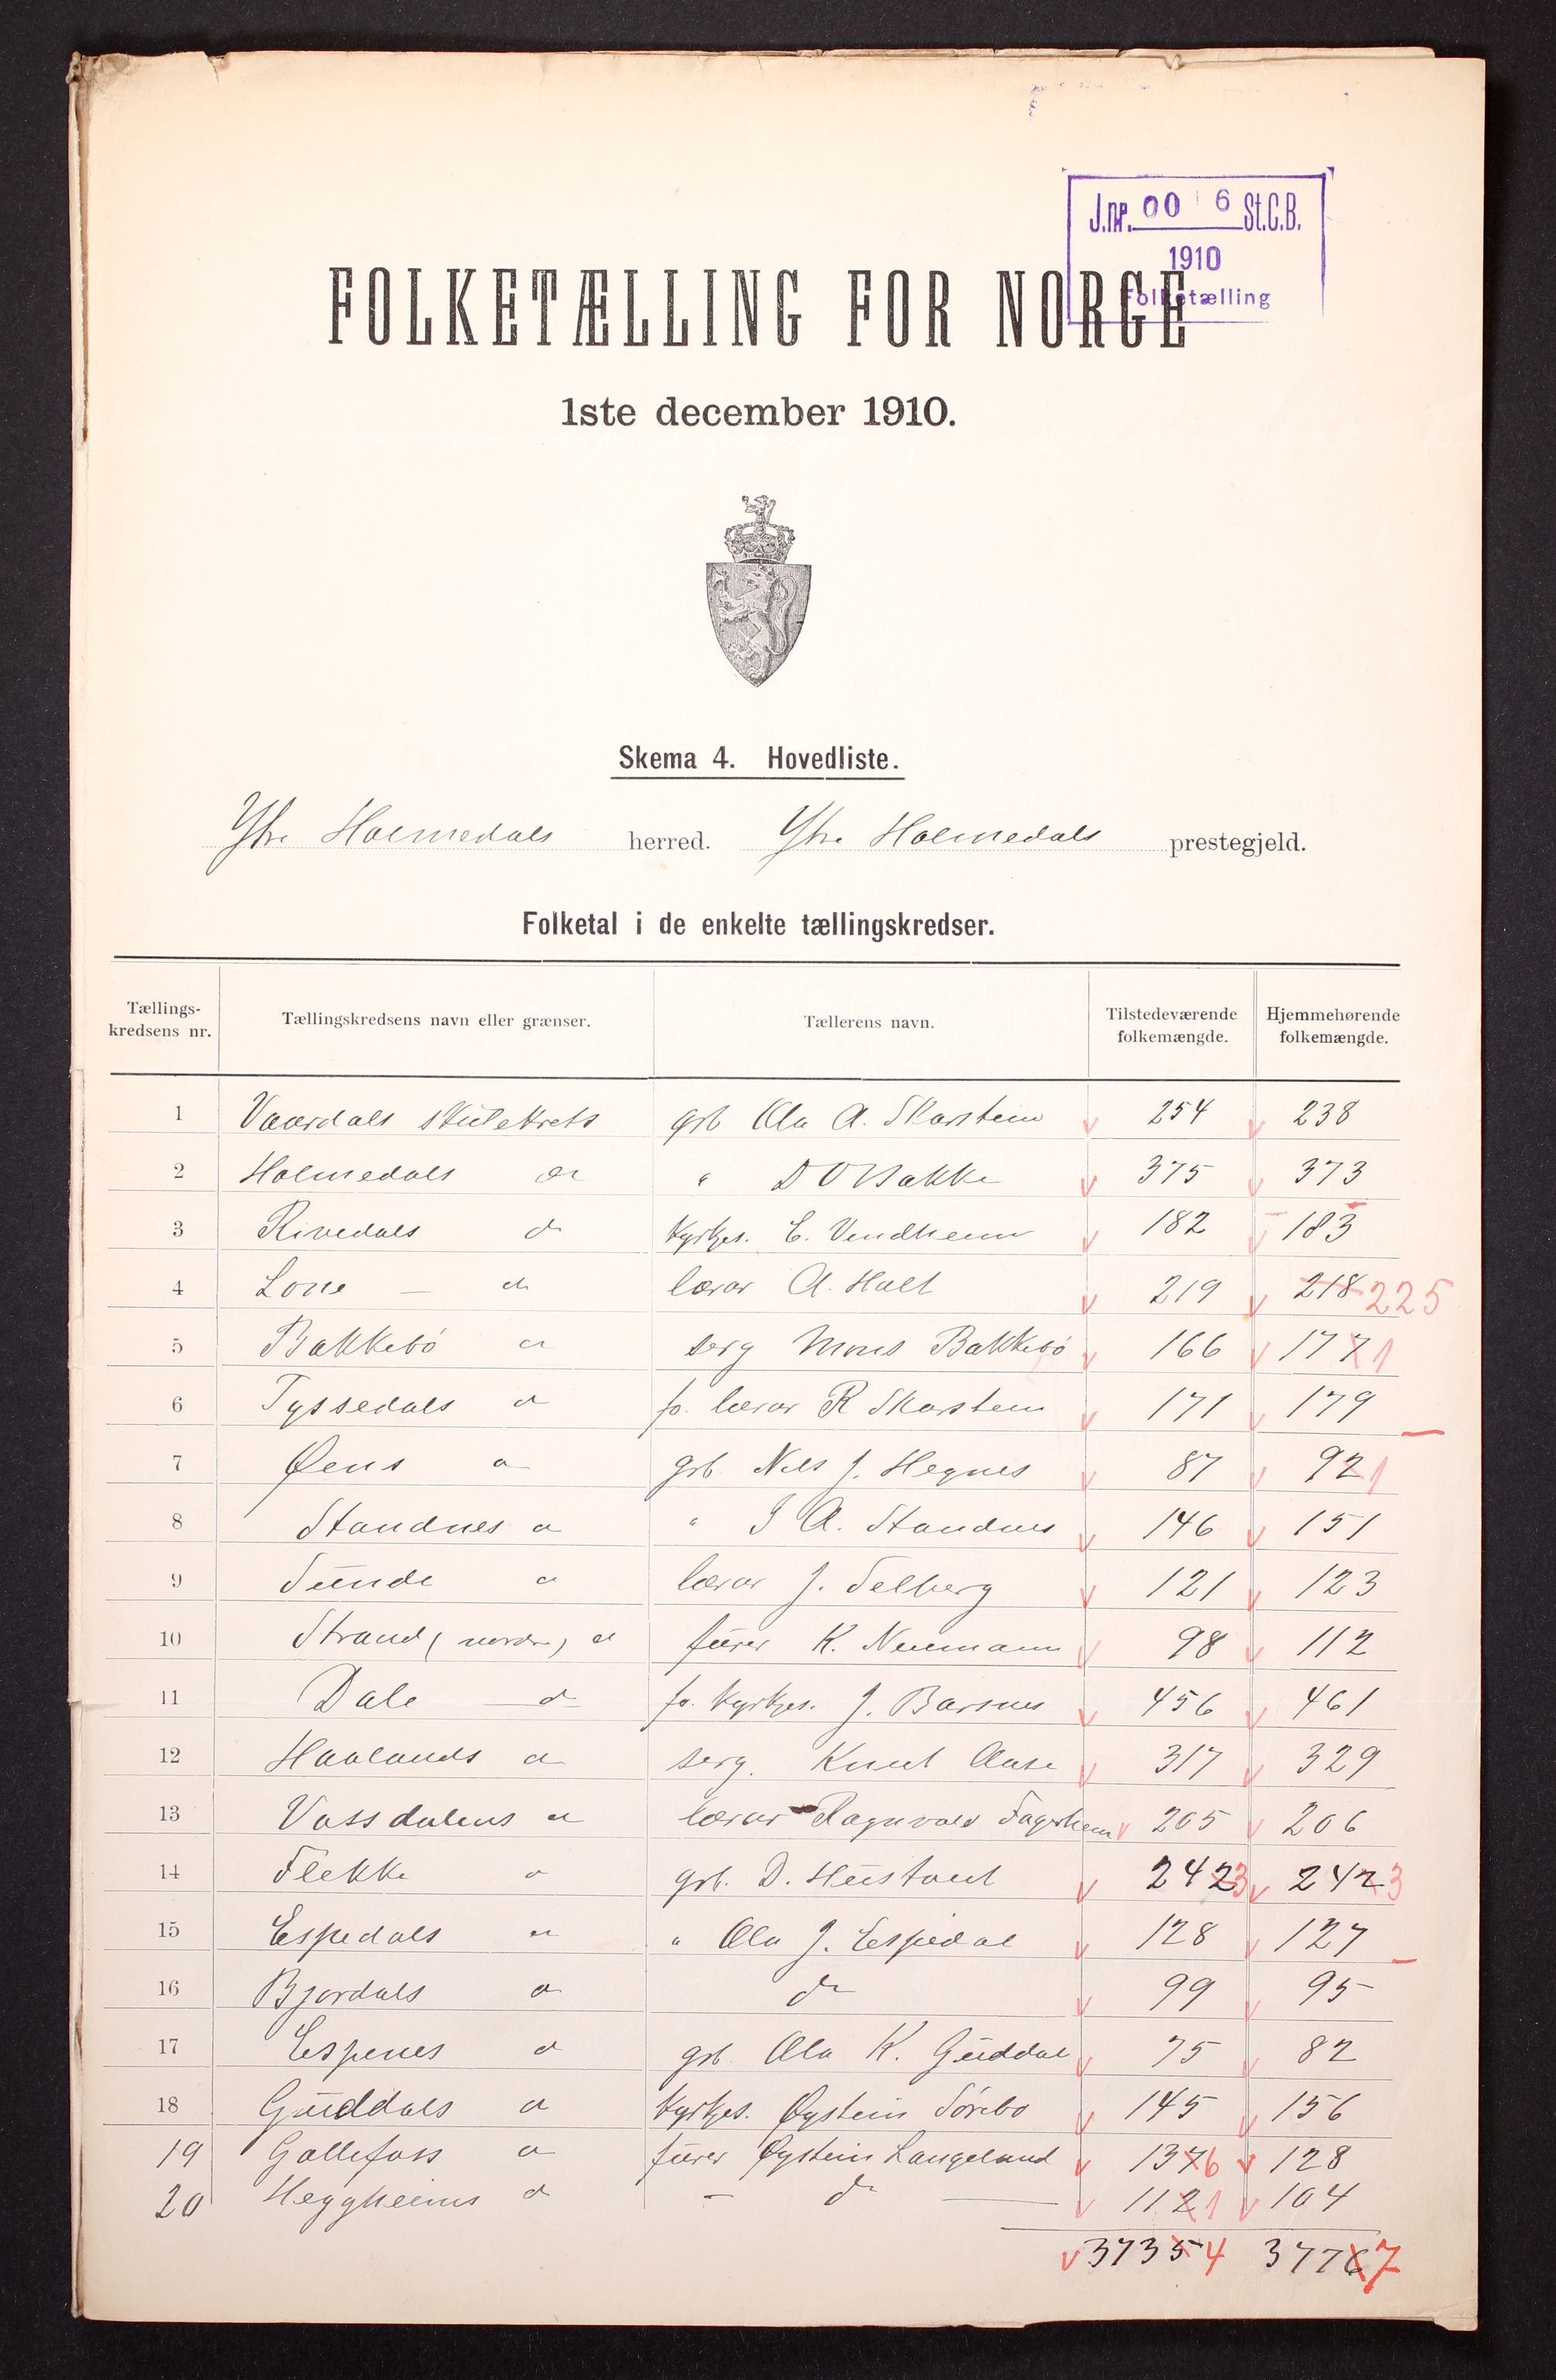 J.nr. 00 6 St.C.B.
1910
Folketælling
FOLKETÆLLING FOR NORGE
1ste december 1910.
Skema 4. Hovedliste.
Ytre Holmedals herred. Ytre Holmedals prestegjeld.
Folketal i de enkelte tællingskredser.
Tællings-kredsens nr. Tællingskredsens navn eller grænser. Tællerens navn. Tilstedeværende folkemængde. Hjemmehørende folkemængde.
1 Vaardals skulekrets grb Ola A. Skarstein v 254 v 238
2 Holmedals do " D O Bakke v 375 v 373
3 Rivedals do kyrkjes. E. Vendheim v 182 v 183
4 Lone — do lærar A. Holt v 219 v 218 225
5 Bakkebö do serg Mons Bakkebö v 166 v 177 1
6 Tyssedals do fv. lærar R Skarstein v 171 v 179
7 Øens do grb. Nils J. Hegnes v 87 v 92 1
8 Standnes do " I A. Standnes v 146 v 151
9 Sunde do lærar J. Selberg v 121 v 123
10 Strand (nordre) do furer K. Neumann v 98 v 112
11 Dale — do fv. kyrkjes. J. Barsnes v 456 v 461
12 Haalands do serg. Knut Aase v 317 v 329
13 Vassdalens do lærar Ragnvald Fagerheim v 205 v 206
14 Flekke do grb. D. Hustoul v 242 3 v 242 3
15 Espedals do " Ola J. Espedal v 128 v 127
16 Bjordals do do v 99 v 95
17 Espenes do grb. Ola K. Guddal v 75 v 82
18 Guddals do kyrkjes. Øystein Sörebo v 145 v 156
19 Gallefoss do furer Øystein Langeland v 137 6 v 128
20 Heggheims do — do — v 112 1 v 104
v 3735 4 3776 7